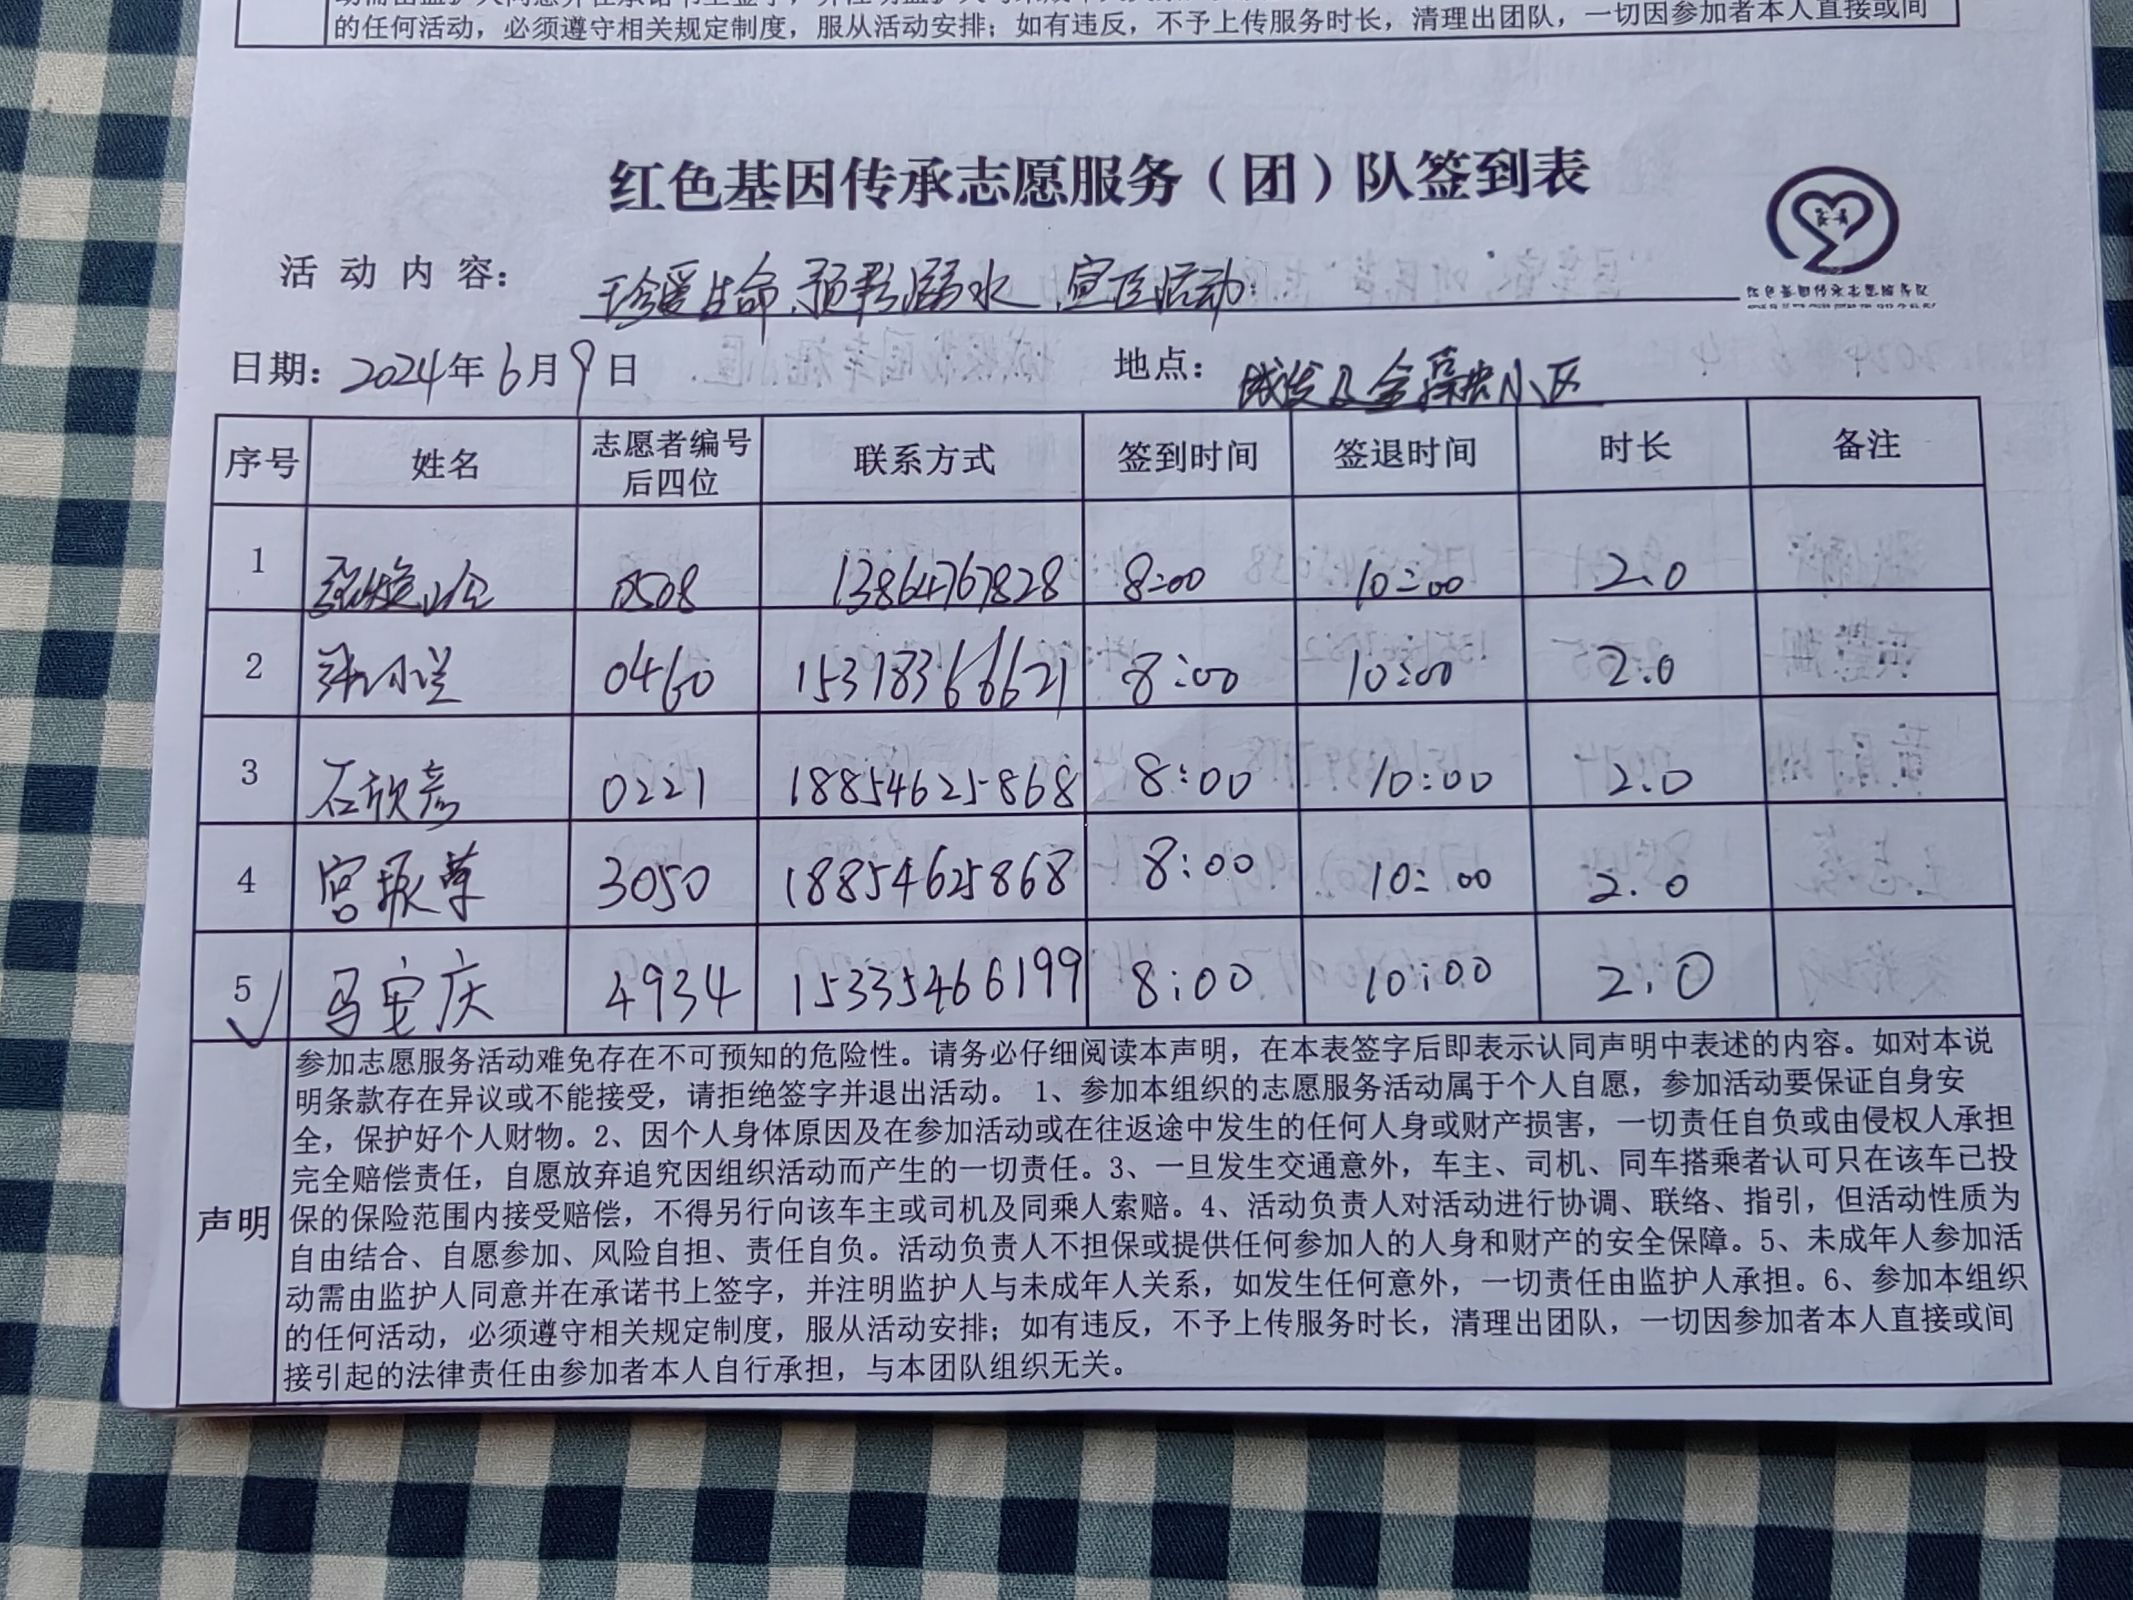 的任何活动，必须遵守相关规定制度，服从活动安排；如有违反，不予上传服务时长，清理出团队，一切因参加者本人直接或间
红色基因传承志愿服务（团）队签到表
活动内容： 珍爱生命、预防溺水 宣传活动
日期：2024年6月9日 地点： 小区
序号 姓名 志愿者编号后四位 联系方式 签到时间 签退时间 时长 备注
1 0508 13864767828 8:00 10:00 2.0
2 0460 15318366621 8:00 10:00 2.0
3 石欣彦 0221 18854625868 8:00 10:00 2.0
4 宫振草 3050 18854625868 8:00 10:00 2.0
5 马安庆 4934 15335466199 8:00 10:00 2.0
声明
参加志愿服务活动难免存在不可预知的危险性。请务必仔细阅读本声明，在本表签字后即表示认同声明中表述的内容。如对本说
明条款存在异议或不能接受，请拒绝签字并退出活动。 1、参加本组织的志愿服务活动属于个人自愿，参加活动要保证自身安
全，保护好个人财物。2、因个人身体原因及在参加活动或在往返途中发生的任何人身或财产损害，一切责任自负或由侵权人承担
完全赔偿责任，自愿放弃追究因组织活动而产生的一切责任。3、一旦发生交通意外，车主、司机、同车搭乘者认可只在该车已投
保的保险范围内接受赔偿，不得另行向该车主或司机及同乘人索赔。4、活动负责人对活动进行协调、联络、指引，但活动性质为
自由结合、自愿参加、风险自担、责任自负。活动负责人不担保或提供任何参加人的人身和财产的安全保障。5、未成年人参加活
动需由监护人同意并在承诺书上签字，并注明监护人与未成年人关系，如发生任何意外，一切责任由监护人承担。6、参加本组织
的任何活动，必须遵守相关规定制度，服从活动安排；如有违反，不予上传服务时长，清理出团队，一切因参加者本人直接或间
接引起的法律责任由参加者本人自行承担，与本团队组织无关。